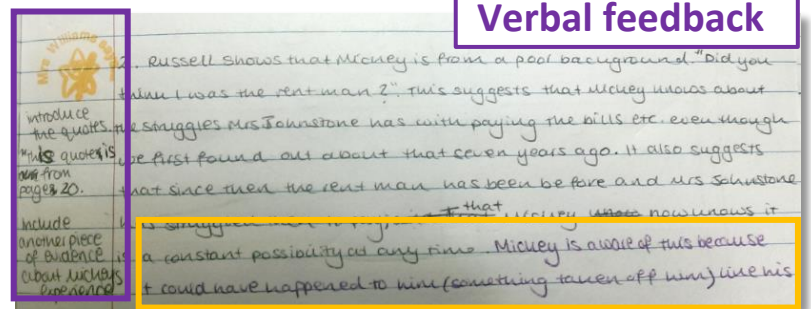 Verbal feedback
Mrs Williams says
introduce
the quotes.
"this quote is
from
pages 20.
include
another piece
of evidence
about Mickeys
experience
2. Russell shows that Mickey is from a poor background. "Did you
think I was the rent man?". This suggests that Mickey knows about
the struggles Mrs Johnstone has with paying the bills etc. even though
we first found out about that seven years ago. It also suggests
that since then the rent man has been before and Mrs Johnstone
struggled that Mickey now knows it
is a constant possibility at any time. Mickey is aware of this because
it could have happened to him (something taken off him) like his